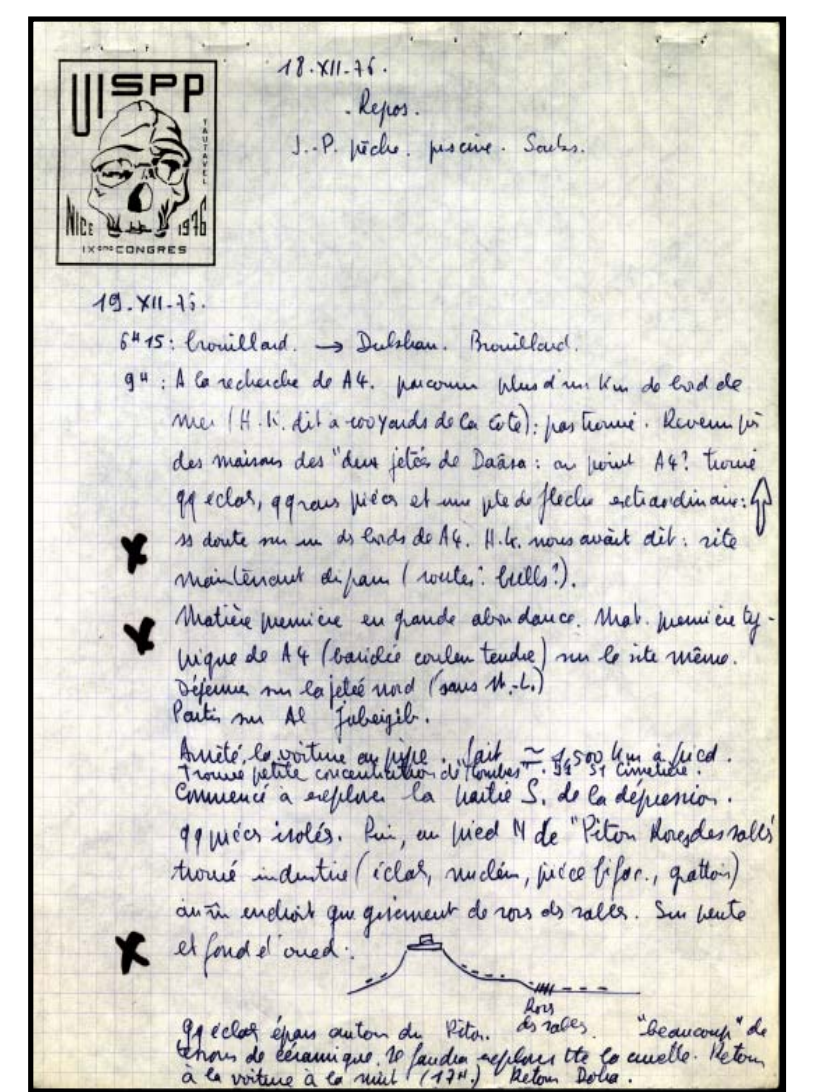 UISPP
TAUTAVEL
NICE 1976
IXème CONGRES
18.XII.76.
Repos.
J.-P. pêche. piscine. Souks.
19.XII.76.
6H15: brouillard. → Dukhan. Brouillard.
9H : A la recherche de A4. parcouru plus d'un Km de bord de
mer (H.K. dit à 100 yards de la côte): pas trouvé. Revenu près
des maisons des "deux jetées de Daâsa: au point A4? trouvé
qq éclats, qq pièces et une pte de flèche extraordinaire:
ss doute sur un ds bords de A4. H.K. nous avait dit: site
maintenant disparu (routes? bulls?).
Matière première en grande abondance. Mat. première ty-
pique de A4 (couleur tendre) sur le site même.
Déjeuner sur la jetée nord (sans M.-L.)
Partis sur Al Jubeigib.
Arrêté la voiture au pipe. fait ≃ 1,500 Km à pied.
Trouvé petite concentration de "tombes". 51 cimetière.
Commencé à explorer la partie S. de la dépression.
qq pièces isolées. Puis, au pied N de "Piton Roses des sables"
trouvé industrie (éclats, nucléus, pièce bifac., grattoir)
au m endroit que gisement de roses ds sables. Sur pente
et fond d'oued:
Roses
ds sables.
qq éclats épars autour du Piton. "beaucoup" de
tessons de céramique. Il faudra explorer tte la cuvette. Retour
à la voiture à la nuit (17H.) Retour Doha.